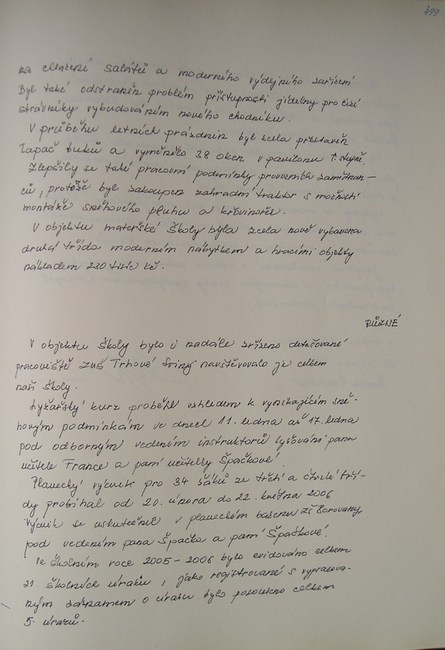 499
na chlazení salátů a moderního výdejního zařízení
Byl také odstraněn problém přístupnosti jídelny pro cizí
strávníky vybudováním nového chodníku.
V průběhu letních prázdnin byl zcela přestavěn
lapač tuků a vyměněno 38 oken v pavilonu 1. stupně.
Zlepšily se také pracovní podmínky provozních zaměstnan-
ců, protože byl zakoupen zahradní traktor s možností
montáže sněhového pluhu a křovinořez.
V objektu mateřské školy byla zcela nově vybavena
druhá třída moderním nábytkem a hracími objekty
nákladem 220 tisíc kč.
RŮZNÉ
V objektu školy bylo i nadále zřízeno detašované
pracoviště ZUŠ Trhové Sviny navštěvovalo je celkem
naší školy.
Lyžařský kurz proběhl vzhledem k vynikajícím sně-
hovým podmínkám ve dnech 11. ledna až 17. ledna
pod odborným vedením instruktorů lyžování pana
učitele France a paní učitelky Špačkové.
Plavecký výcvik pro 34 žáků ze třetí a čtvrté tří-
dy probíhal od 20. února do 22. května 2006
Výcvik se uskutečnil v plaveckém bazénu
pod vedením pana Špačka a paní Špačkové.
Ve školním roce 2005-2006 bylo evidováno celkem
21 školních úrazů, jako registrované s vypracova-
ným záznamem o úrazu bylo celkem
5 úrazů.